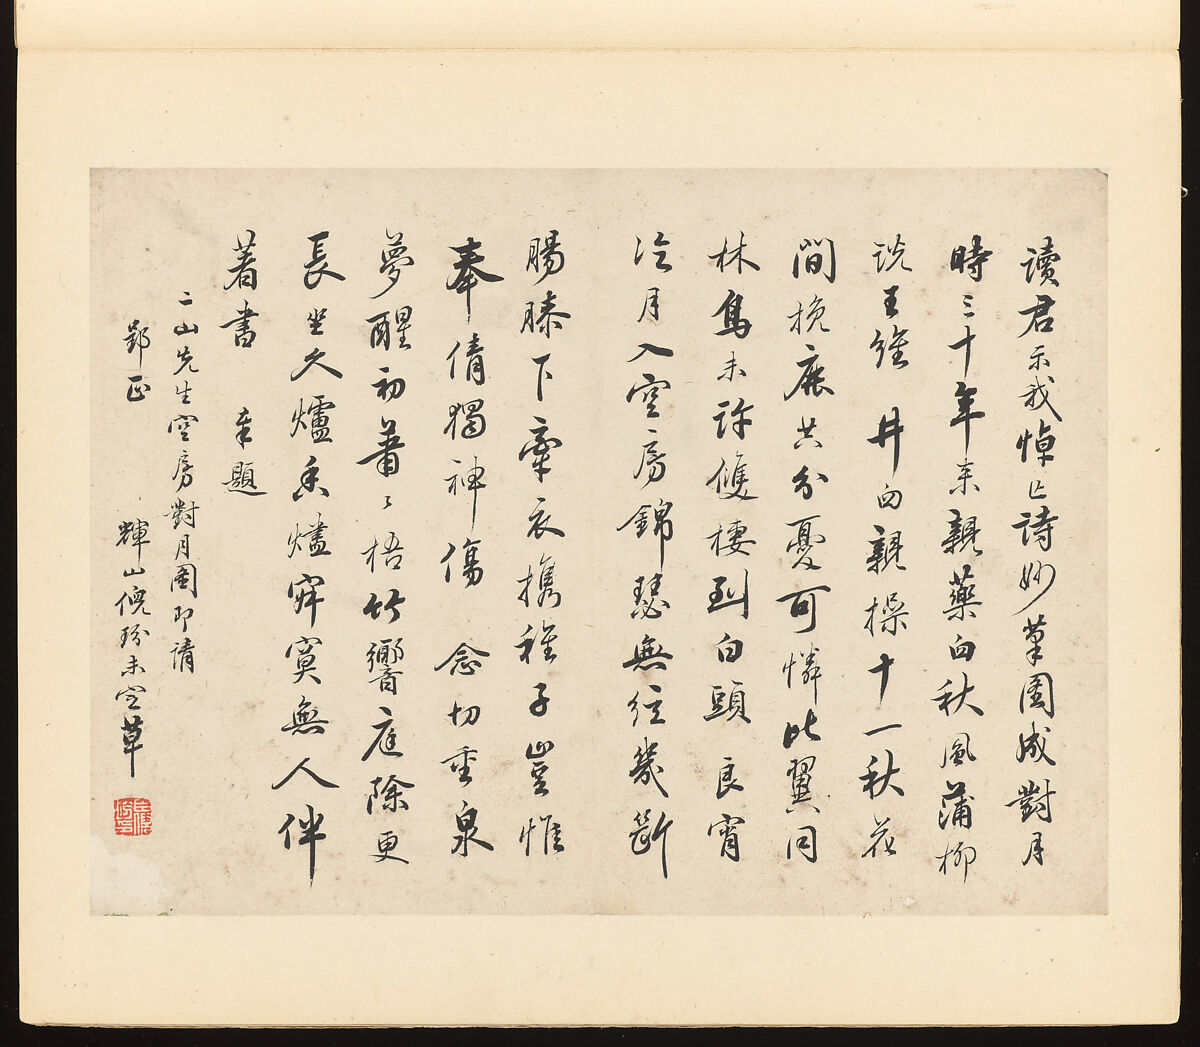 讀君示我悼亡詩妙筆圖成對月
時三十年来親藥臼秋風蒲柳
説王維 井臼親操十一秋花
間挽鹿共分憂可憐比翼同
林鳥未許雙棲到白頭 良宵
冷月入空房錦瑟無絃幾斷
腸膝下牽衣攜稚子豈惟
奉倩獨神傷 念切重泉
夢醒初蕭〻梧竹響庭除更
長坐久爐香燼寂寞無人伴
著書 奉題
二山先生空房對月圖即請
郢正
輝山倪玢未定草